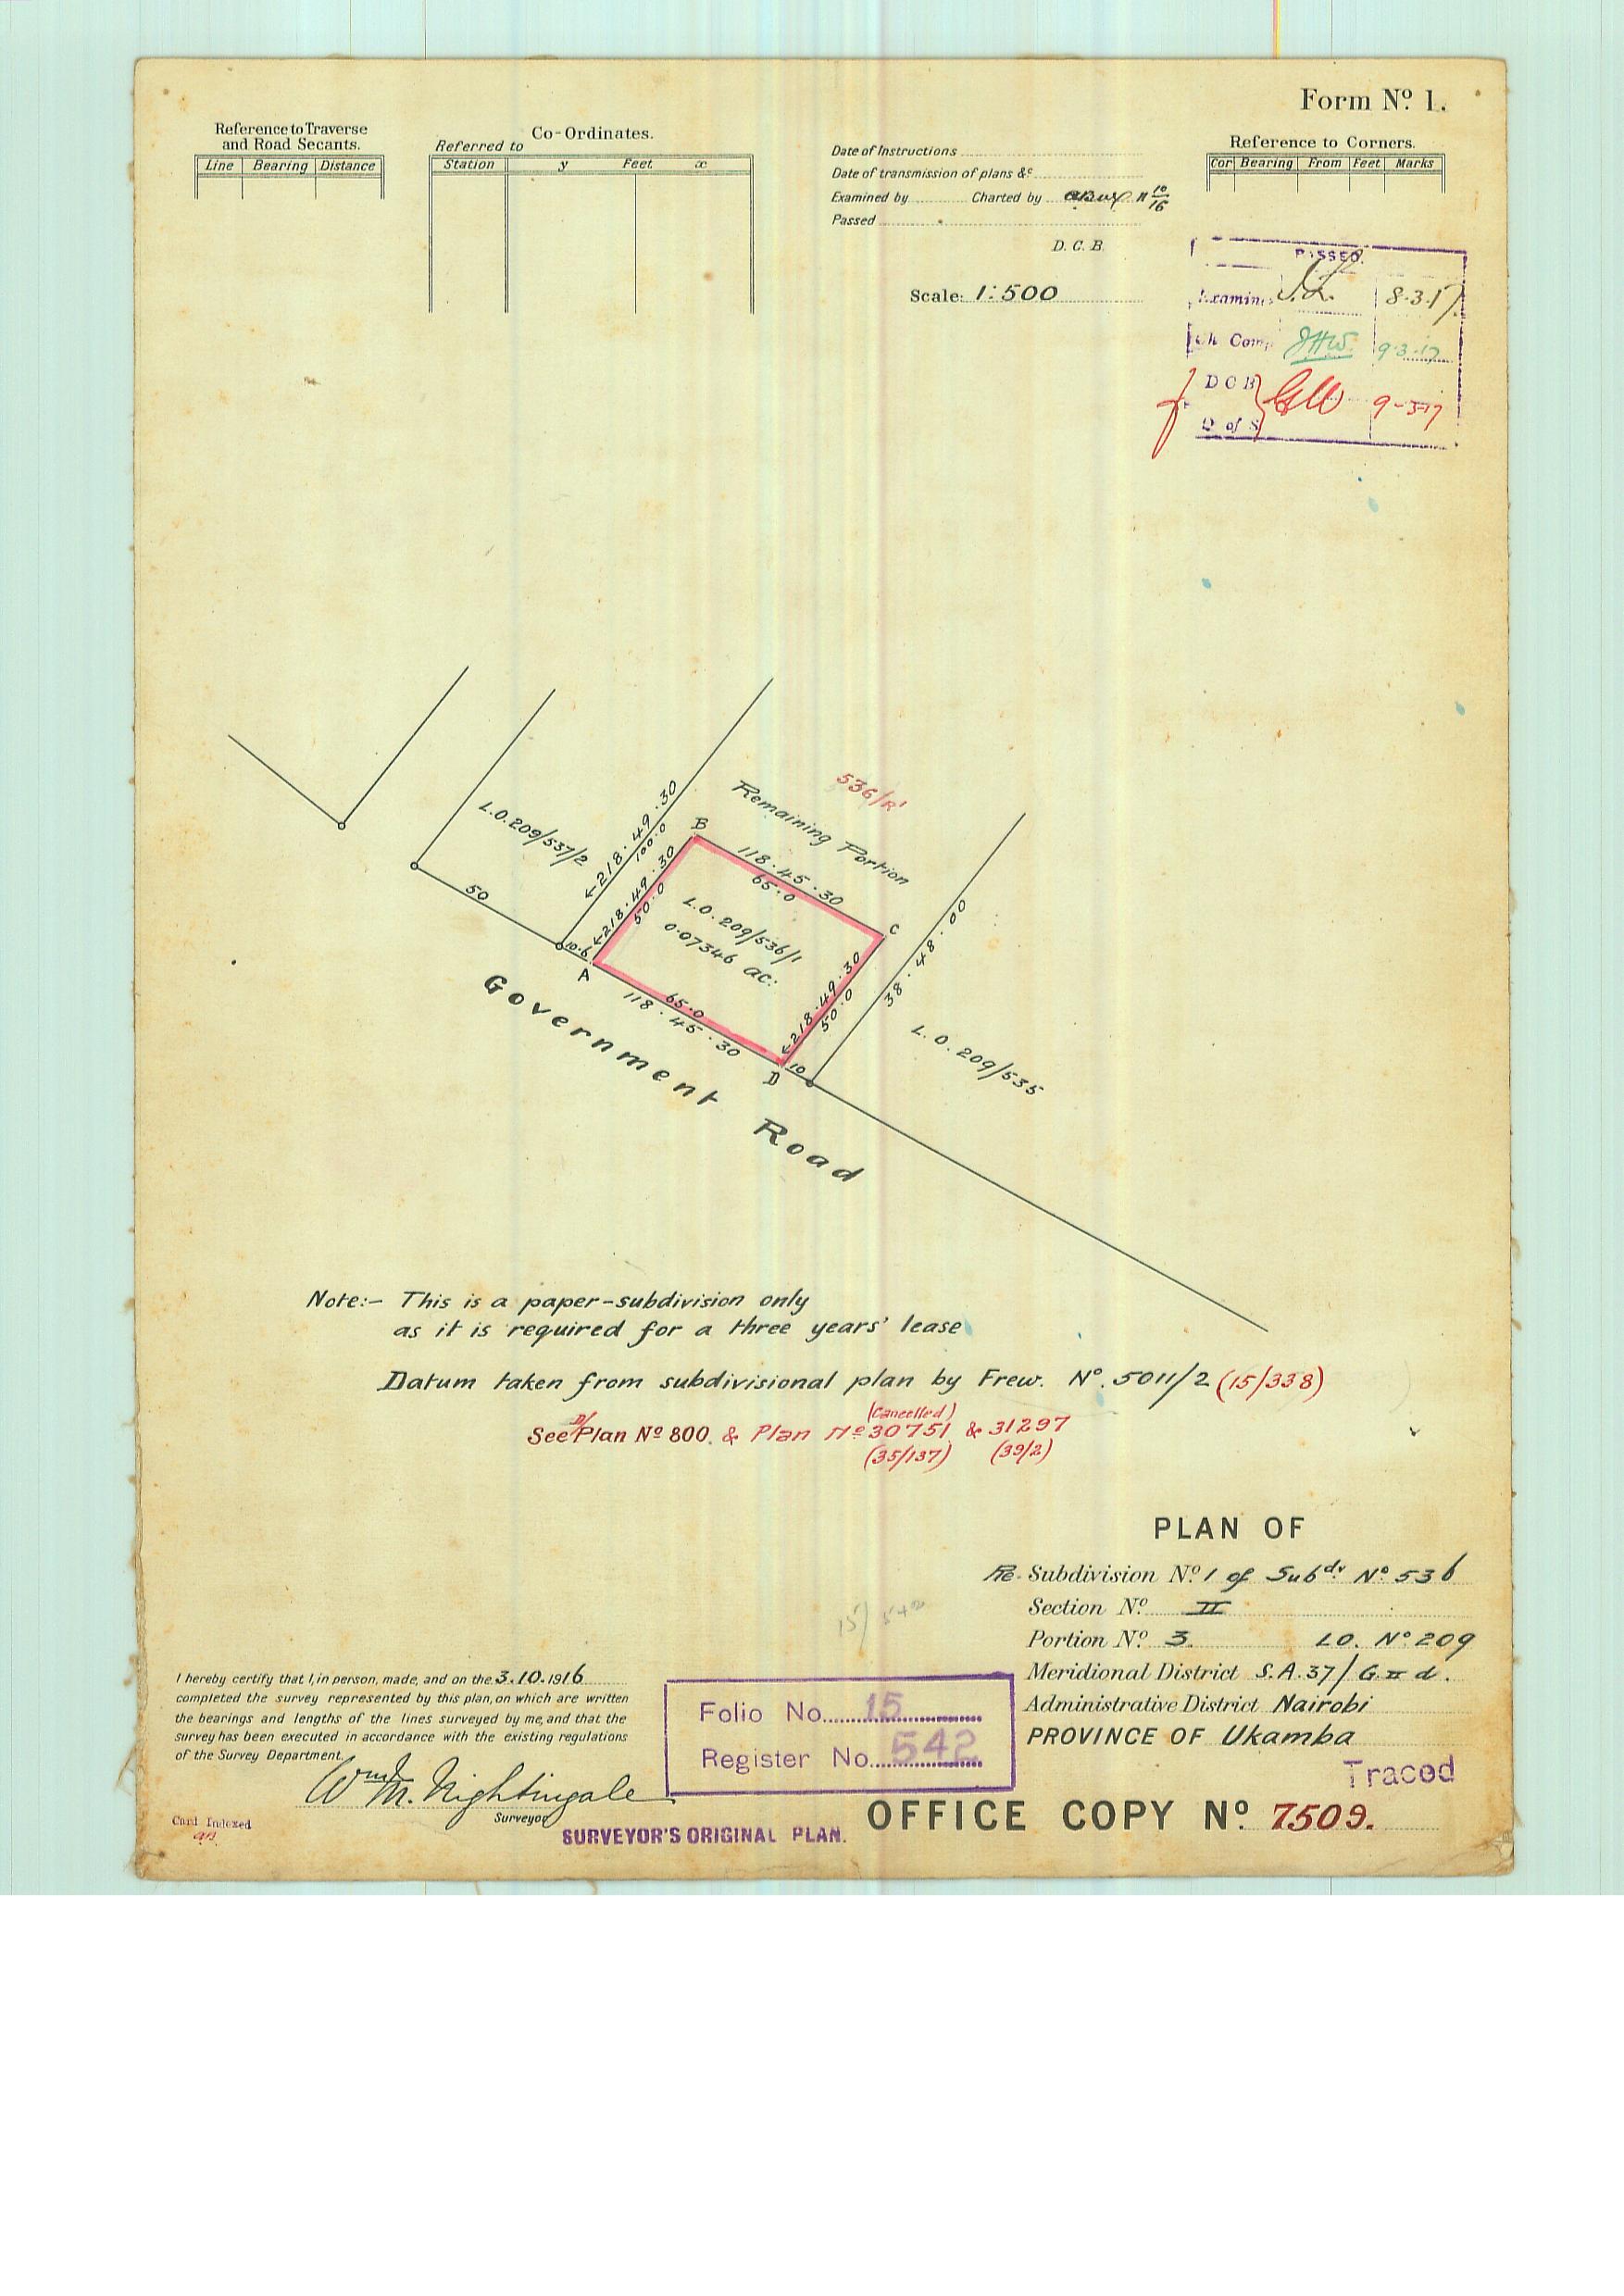 Form Nº 1.
Reference to Traverse
and Road Secants.
Line Bearing Distance
Co-Ordinates.
Referred to
Station y Feet x
Date of Instructions
Date of transmission of plans &c
Examined by Charted by 11 10/16
Passed
D. C. B.
Scale: 1:500
Reference to Corners.
Cor Bearing From Feet Marks
PASSED.
Examine 8.3.17.
Ch. Comp. JHW. 9.3.17
D C B GW 9-3-17
D of S
L.O. 209/537/2
←218.49.30
100.0
B
Remaining Portion
536/R'
118.45.30
65.0
←218.49.30
50.0
L.O. 209/536/1
0.07346 ac.
C
50
10.6
A
65.0
118.45.30
←218.49.30
50.0
38.48.00
D
10
L.O. 209/535
Government Road
Note:- This is a paper-subdivision only
as it is required for a three years' lease
Datum taken from subdivisional plan by Frew. Nº. 5011/2 (15/338)
See D/Plan Nº 800. & Plan Nº 30751 (Cancelled) & 31297
(35/137) (39/2)
PLAN OF
Re-Subdivision Nº 1 of Subdn Nº 536
Section Nº II
Portion Nº 3. L.O. Nº 209
Meridional District S.A.37/G II d.
Administrative District Nairobi
PROVINCE OF Ukamba
Traced
15/542
I hereby certify that I, in person, made, and on the 3.10.1916
completed the survey represented by this plan, on which are written
the bearings and lengths of the lines surveyed by me, and that the
survey has been executed in accordance with the existing regulations
of the Survey Department.
Wm M. Nightingale
Surveyor
Folio No. 15
Register No. 542
Card Indexed
SURVEYOR'S ORIGINAL PLAN.
OFFICE COPY Nº. 7509.